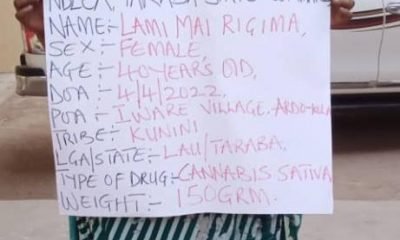 NDLEA, TARABA STATE COMMAND
NAME:- LAMI MAI RIGIMA,
SEX:- FEMALE,
AGE:- 40YEAR'S OLD,
DOA:- 4/4/2022,
POA:- IWARE VILLAGE, ARDO-KOLA
TRIBE:- KUNINI
LGA/STATE:- LAU/TARABA,
TYPE OF DRUG:- CANNABIS SATIVA
WEIGHT:- 150GRM.